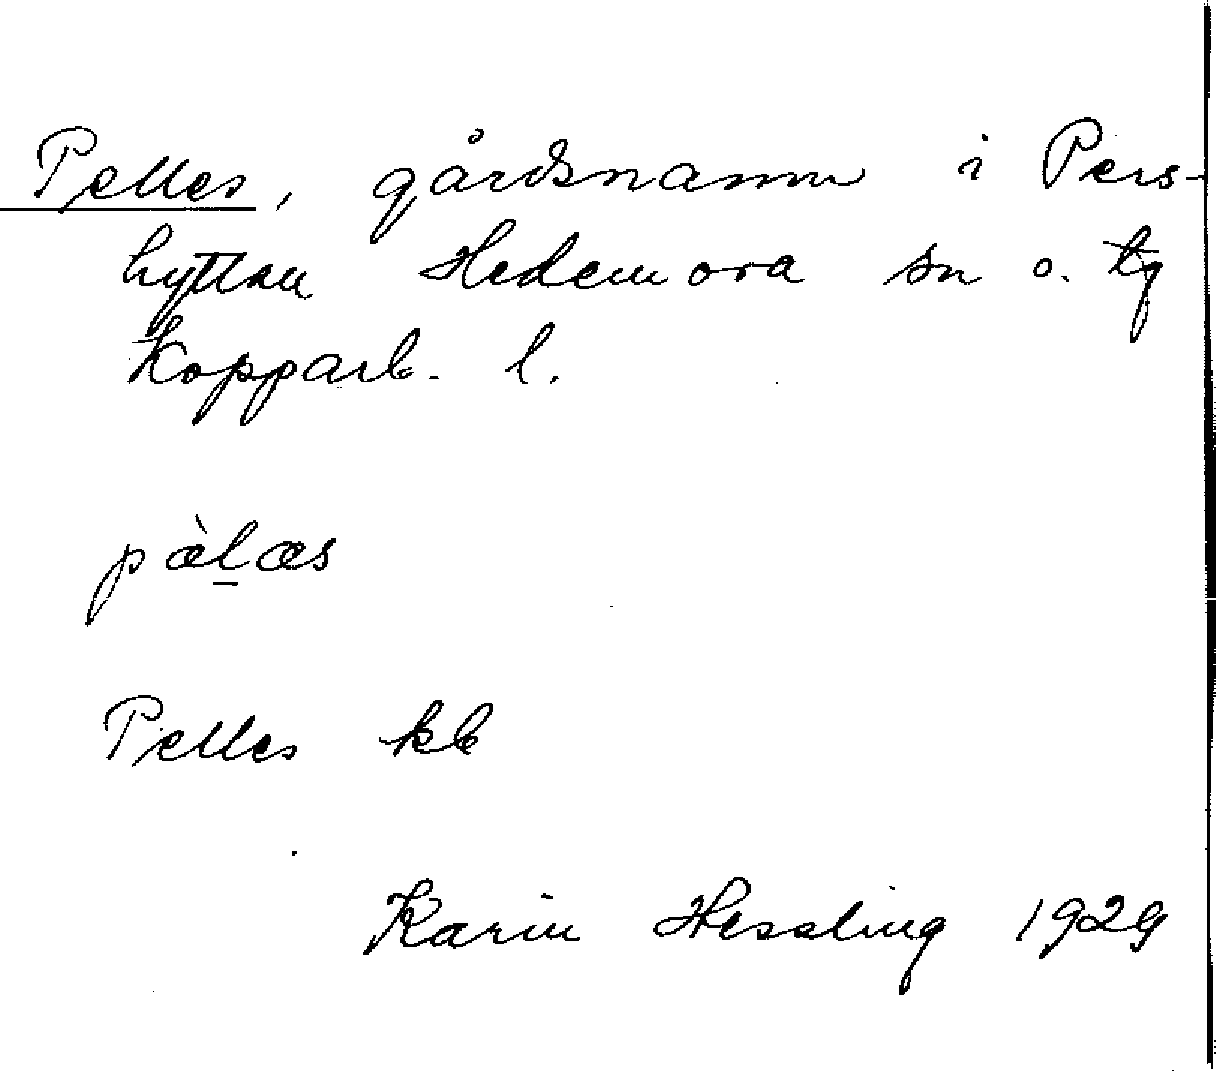 Pelles, gårdsnamn i Pers-
hyttan Hedemora sn o. tg
Kopparb. l.
pæ̀l̲æs
Pelles kb
Karin Hessling 1929